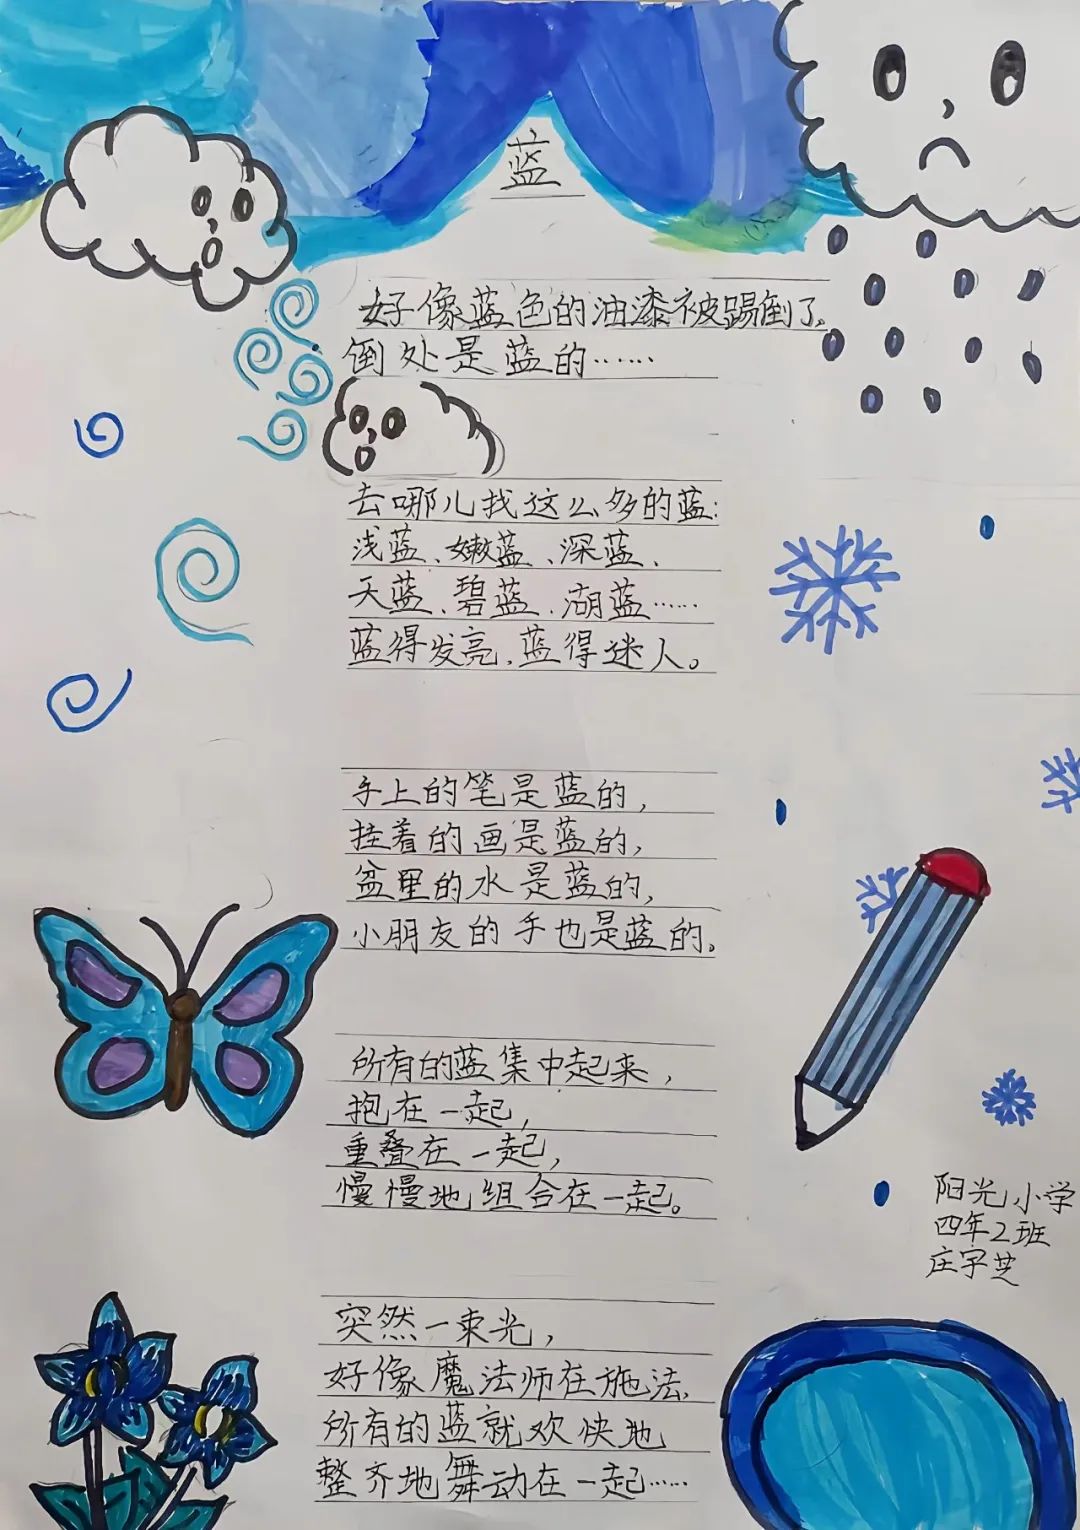 蓝
好像蓝色的油漆被踢倒了。
倒处是蓝的……
去哪儿找这么多的蓝:
浅蓝、嫩蓝、深蓝、
天蓝、碧蓝、湖蓝……
蓝得发亮,蓝得迷人。
手上的笔是蓝的,
挂着的画是蓝的,
盆里的水是蓝的,
小朋友的手也是蓝的。
所有的蓝集中起来,
抱在一起,
重叠在一起,
慢慢地组合在一起。
突然一束光,
好像魔法师在施法,
所有的蓝就欢快地
整齐地舞动在一起……
阳光小学
四年2班
庄宇芝